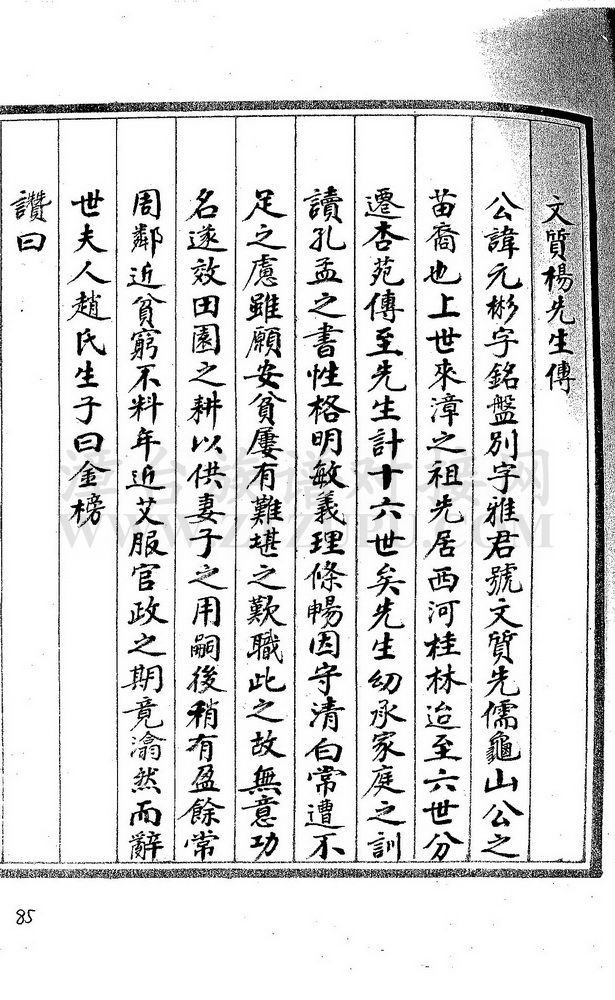 文質楊先生傳
公諱元彬字銘盤別字雅君號文質先儒龜山公之
苗裔也上世來漳之祖先居西河桂林迨至六世分
遷杏苑傳至先生計十六世矣先生幼承家庭之訓
讀孔孟之書性格明敏義理條暢因守清白常遭不
足之慮雖願安貧屢有難堪之歎職此之故無意功
名遂效田園之耕以供妻子之用嗣後稍有盈餘常
周鄰近貧窮不料年近艾服官政之期竟溘然而辭
世夫人趙氏生子曰金榜
讚曰
漳台族谱对接网
WWW.ZTZUPU.COM
85